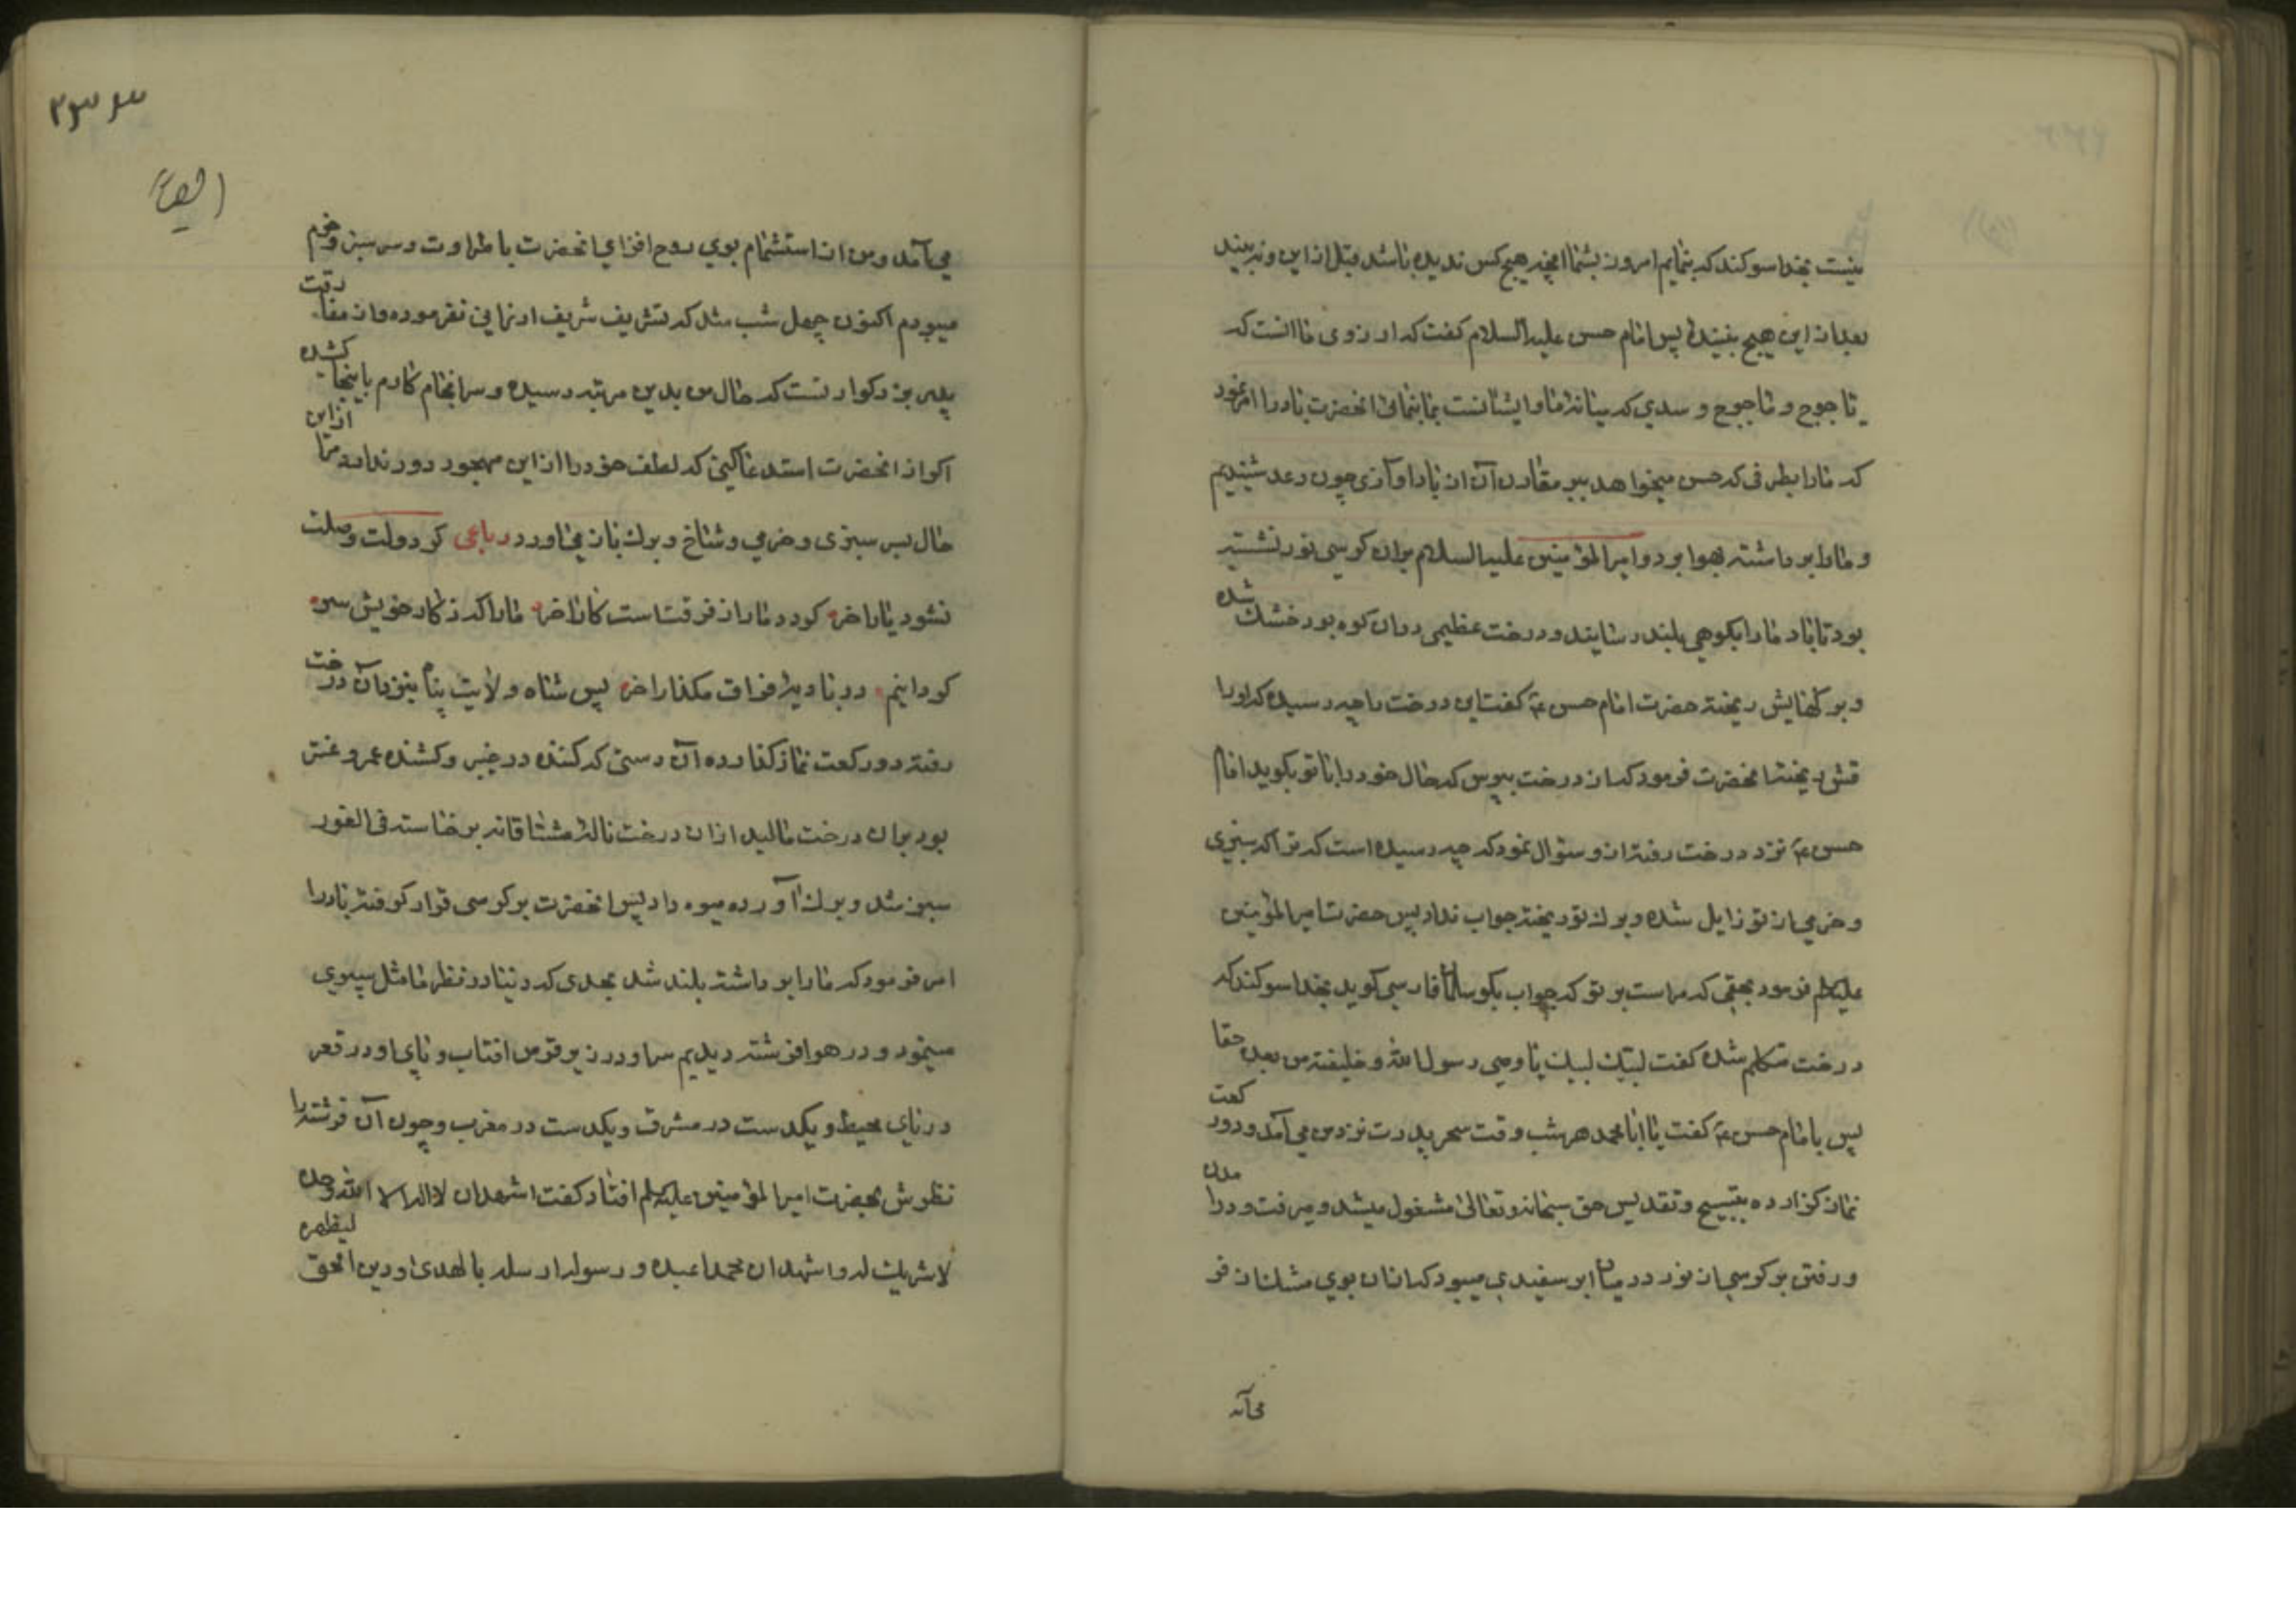 نیست بخدا سوکند که بنمایم امروز بشما انچه هیچ کس ندیده باشد قبل از این و نه بیند
بعد از این هیچ بینندۀ پس امام حسن علیه السلام کفت که ارزوی ما انست که
یاجوج و ماجوج و سدی که میانه ما و ایشانست بما بنمائی انحضرت باد را امر نمود
که ما را بطرفی که حسن میخواهد ببر مقارن آن از باد اوآزی چون رعد شنیدیم
و ما را برداشته بهوا برد و امیر المؤمنین علیه السلام بران کرسی نور نشسته
بود تا باد ما را بکوهی بلند رسانید و درخت عظیمی در ان کوه بود خشک شده
و برکهایش ریخته حضرت امام حسن ع کفت این درخت را چه رسیده که اورا
قش ریخته انحضرت فرمود که از درخت بپرس که حال خود را با تو بکوید امام
حسن ع نزد درخت رفته از و سئوال نمود که چه رسیده است ترا که سبزی
و خرمی از تو زایل شده و برک تو ریخته جواب نداد پس حضرت امیر المؤمنین
علیه السلم فرمود بحقی که مراست بر تو که جواب بکو سلمان فارسی کوید بخدا سوکند که
درخت متکلم شده کفت لبیک لبیک یا وصی رسول الله و خلیفته من بعده حقا
پس با امام حسن ع کفت یا ابا محمد هر شب وقت سحر پدرت نزد من می آمد و دو رکعت
نماز کزارده بتسبیح و تقدیس حق سبحانه و تعالی مشغول میشد و میرفت و در امدن
و رفتن بر کرسی از نور در میان ابر سفیدی میبود که از ان بوی مشک از فر
می آمد
۲۳۳
می آمد و من از استشمام بوی روح افزای انحضرت با طراوت و سر سبز و خرم
میبودم اکنون چهل شب شد که تشریف شریف ارزانی نفرموده و از مفارقت
پدر بزرکوارتست که حال من بدین مرتبه رسیده و سرانجام کارم باینجا کشیده
اکر از انحضرت استدعا کنی که لطف خود را از این مهجور دور ندارد مرا از این
حال بسر سبزی و خرمی و شاخ و برک باز می اورد رباعی کر دولت وصلت
نشود یار اخر کردد ما را ز فرقتت کار اخر ما را که ز کار خویش سر
کردانیم در بادیۀ فراق مکذار اخر پس شاه ولایت پناه بنزد آن درخت
رفته دو رکعت نماز کذارده آن دستی که کننده در خیبر و کشنده عمرو عنتر
بود بران درخت مالید از ان درخت ناله مشتاقانه برخاسته فی الفور
سبز شد و برک آورده میوه داد پس انحضرت بر کرسی قرار کرفته باد را
امر فرمود که ما را برداشته بلند شد بحدی که دنیا در نظر ما مثل سپری
مینمود و در هوا فرشته دیدیم سر او در زیر قرص افتاب و پای او در قعر
دریای محیط و یکدست در مشرق و یکدست در مغرب و چون آن فرشته را
نظرش بحضرت امیر المؤمنین علیه السلم افتاد کفت اشهد ان لا اله الا الله وحده
لا شریک له و اشهد ان محمدا عبده و رسوله ارسله بالهدی و دین الحق لیظهره